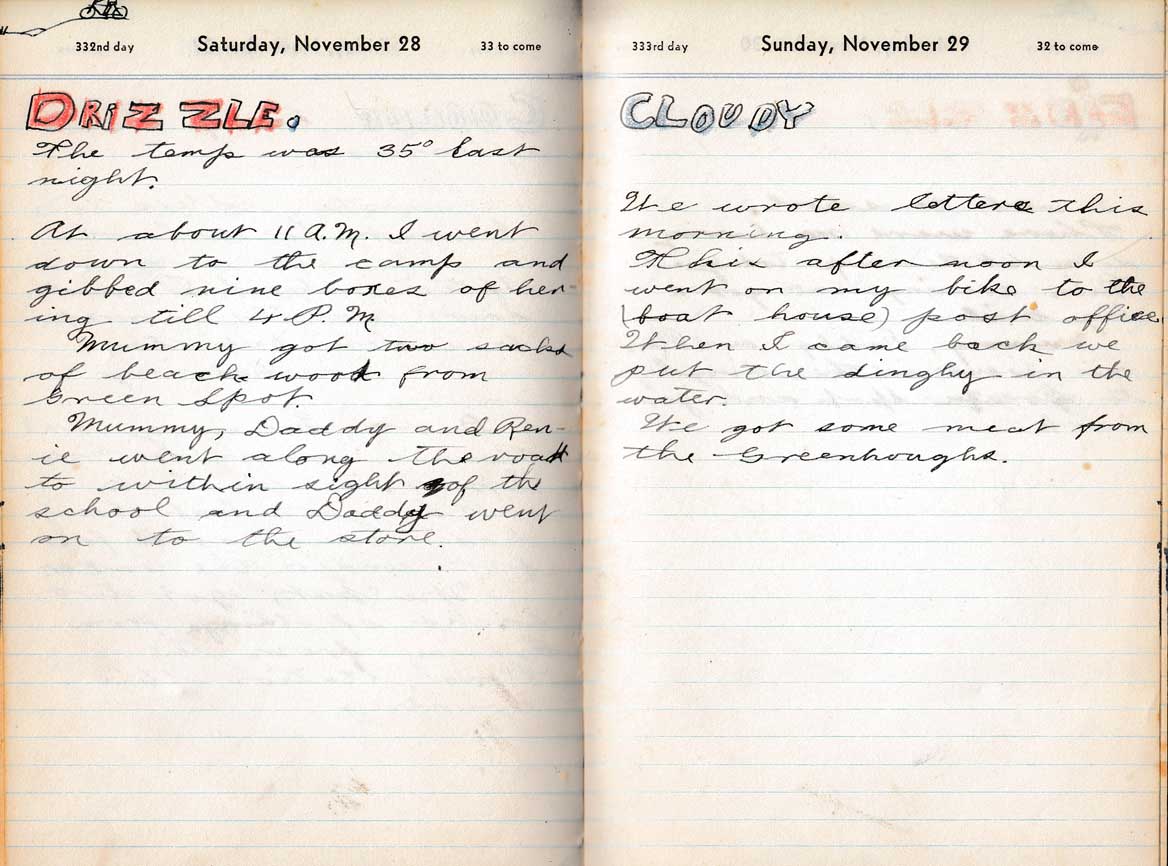 332nd day Saturday, November 28 33 to come
DRIZZLE.
The temp was 35° last
night.
At about 11 A.M. I went
down to the camp and
gibbed nine boxes of her-
ing till 4 P.M.
Mummy got two sacks
of beach wood from
Green Spot.
Mummy, Daddy and Ren-
ie went along the road
to within sight of the
school and Daddy went
on to the store.
333rd day Sunday, November 29 32 to come
CLOUDY
We wrote letters this
morning.
This after noon I
went on my bike to the
(boat house) post office.
When I came back we
put the dinghy in the
water.
We got some meat from
the Greenhoughs.